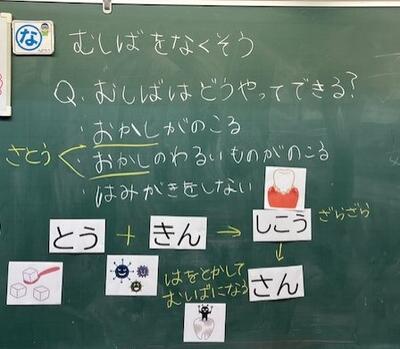 な
むしばをなくそう
Q、むしばはどうやってできる？
・おかしがのこる
さとう
・おかしのわるいものがのこる
・はみがきをしない
とう + きん → しこう ざらざら
↓
はをとかして
むしばになる
さん